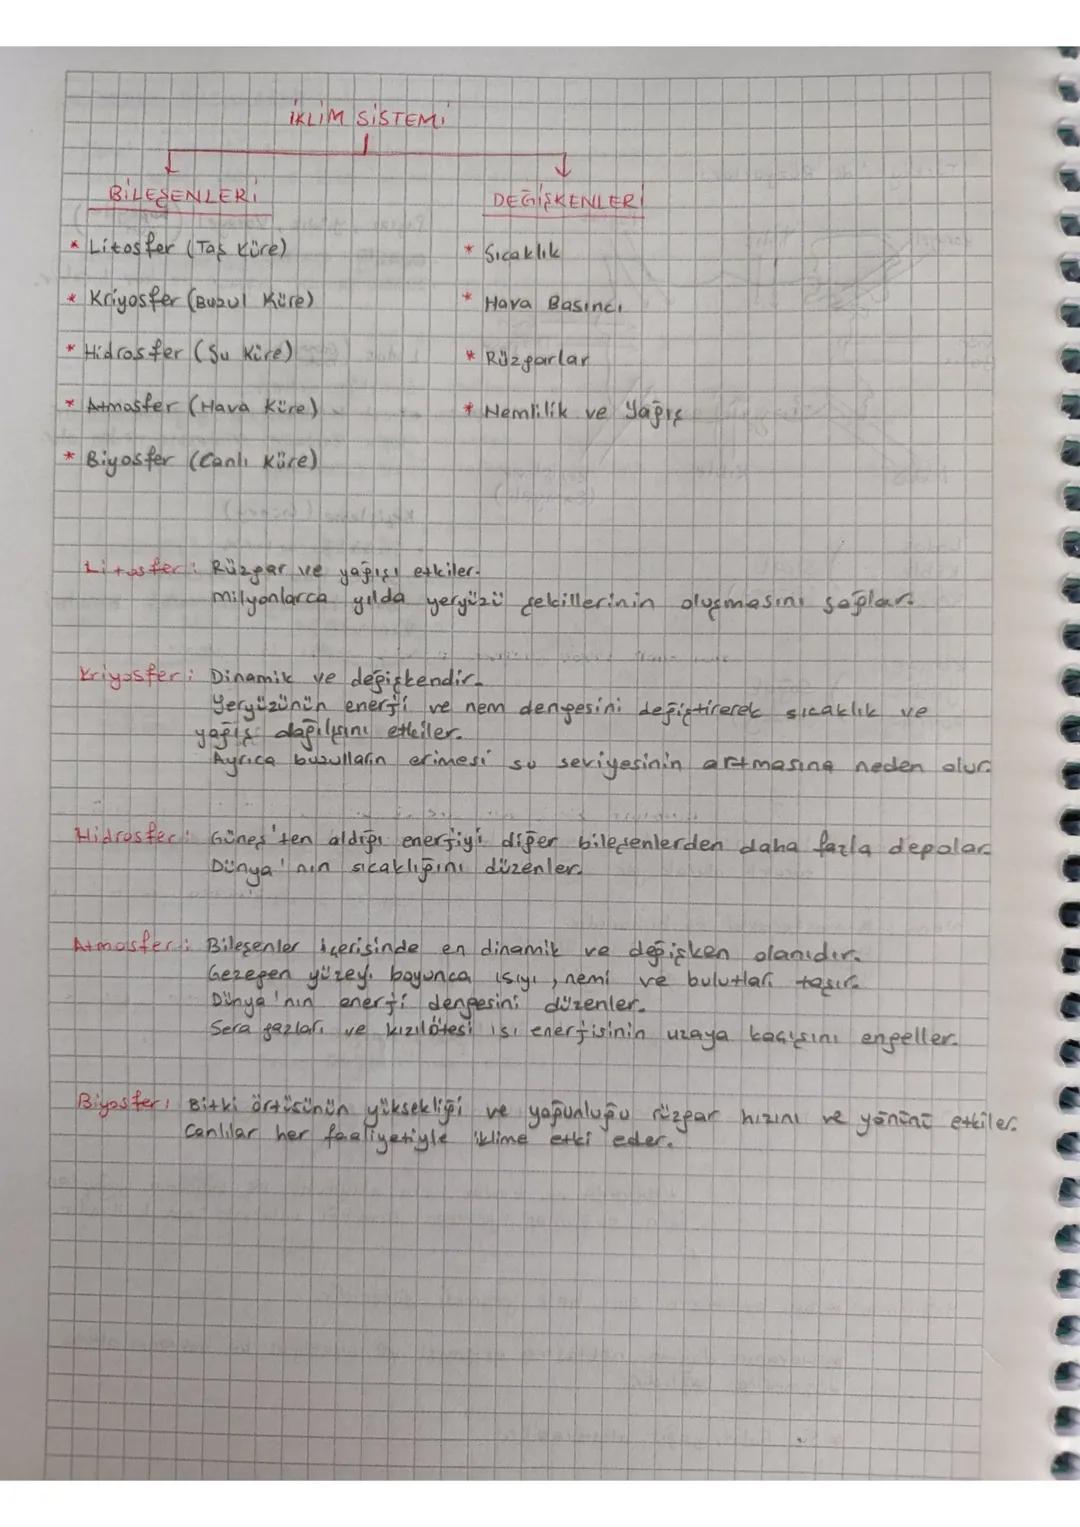 İKLİM SİSTEMİ
BİLEŞENLERİ
DEĞİŞKENLERİ
* Litosfer (Taş Küre)
* Sıcaklık
* Kriyosfer (Buzul Küre)
* Hava Basıncı
* Hidrosfer (Su Küre)
* Rüzgarlar
* Atmosfer (Hava Küre)
* Nemlilik ve Yağış
* Biyosfer (Canlı Küre)
Litosfer: Rüzgar ve yağışı etkiler.
milyonlarca yılda yeryüzü şekillerinin oluşmasını sağlar.
Kriyosfer: Dinamik ve değişkendir.
Yeryüzünün enerji ve nem dengesini değiştirerek sıcaklık ve
yağış dağılışını etkiler.
Ayrıca buzulların erimesi su seviyesinin artmasına neden olur.
Hidrosfer: Güneş'ten aldığı enerjiyi diğer bileşenlerden daha fazla depolar.
Dünya'nın sıcaklığını düzenler.
Atmosfer: Bileşenler içerisinde en dinamik ve değişken olanıdır.
Gezegen yüzeyi boyunca ısıyı, nemi ve bulutları taşır.
Dünya'nın enerji dengesini düzenler.
Sera gazları ve kızılötesi ısı enerjisinin uzaya kaçışını engeller.
Biyosfer: Bitki örtüsünün yüksekliği ve yoğunluğu rüzgar hızını ve yönünü etkiler.
Canlılar her faaliyetiyle iklime etki eder.